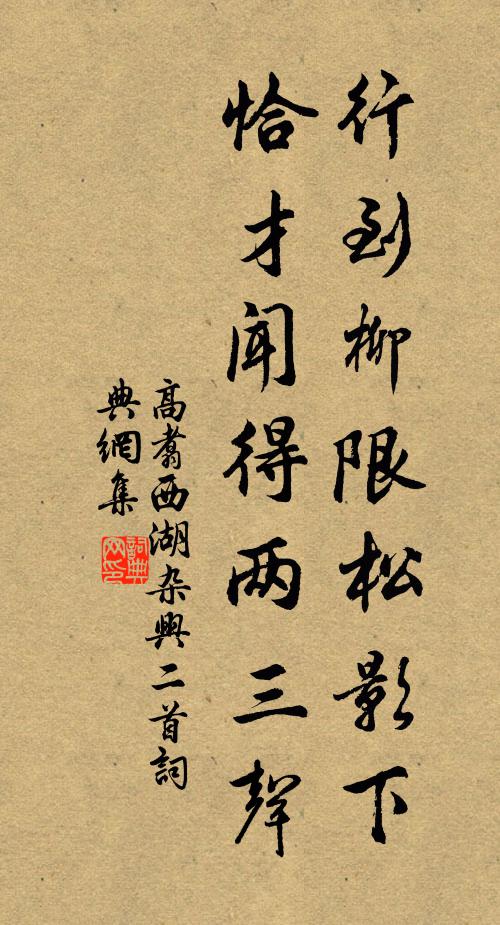 行到柳限松影下
恰才聞得两三聲
高翥西湖杂興二首詞
典網集
詞典网印